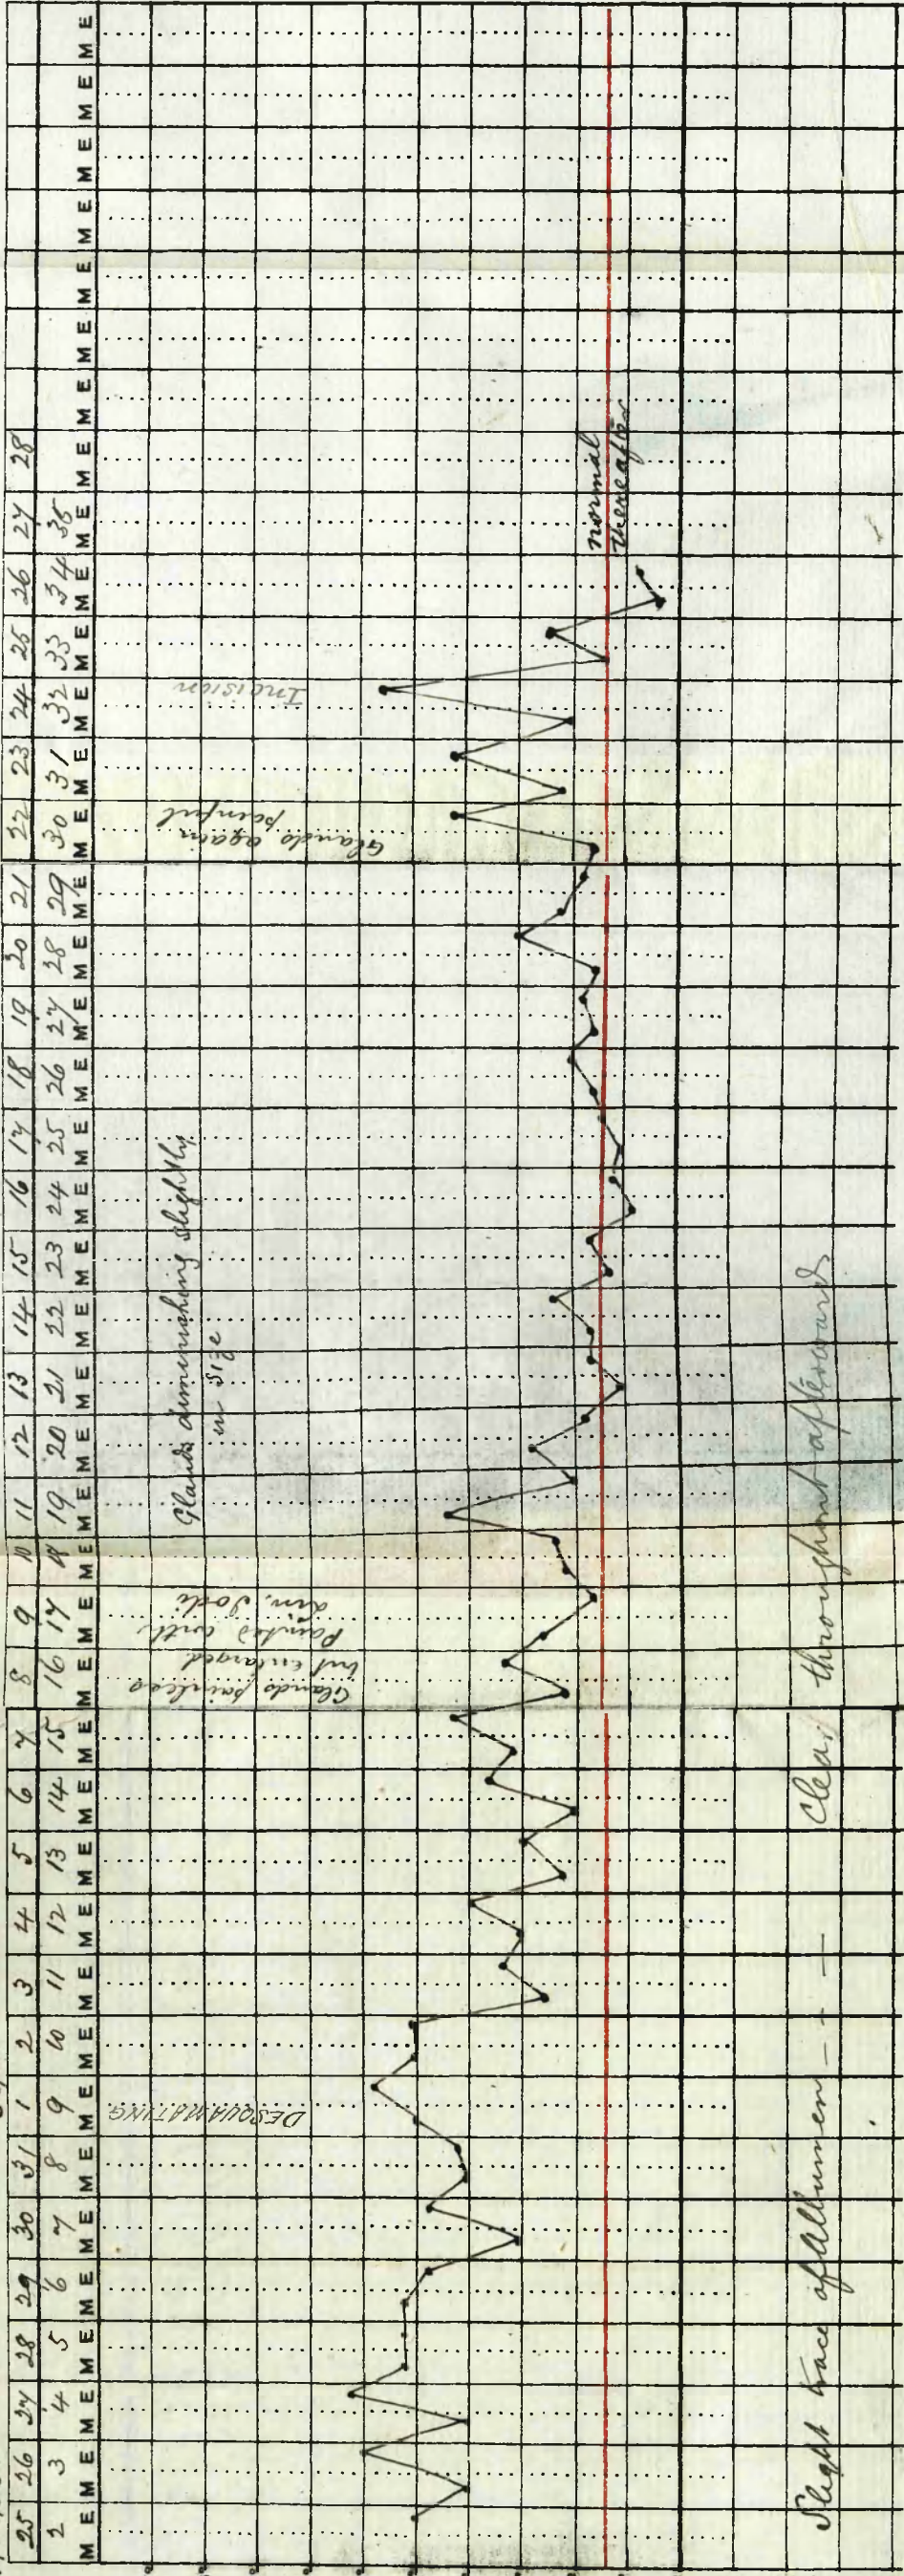 25 26 27 28 29 30 31 1 2 3 4 5 6 7 8 9 10 11 12 13 14 15 16 17 18 19 20 21 22 23 24 25 26 27 28
2 3 4 5 6 7 8 9 10 11 12 13 14 15 16 17 18 19 20 21 22 23 24 25 26 27 28 29 30 31 32 33 34 35
M E M E M E M E M E M E M E M E M E M E M E M E M E M E M E M E M E M E M E M E M E M E M E M E M E M E M E M E M E M E M E M E M E M E M E M E M E M E M E M E M E M E
DESQUAMATING
Glands painless
but enlarged
Painted with
Lin. Iodi
Glands diminishing slightly
in size
Glands again
painful
Incision
normal
thereafter
Slight trace of Albumen — - — Clear throughout afterwards